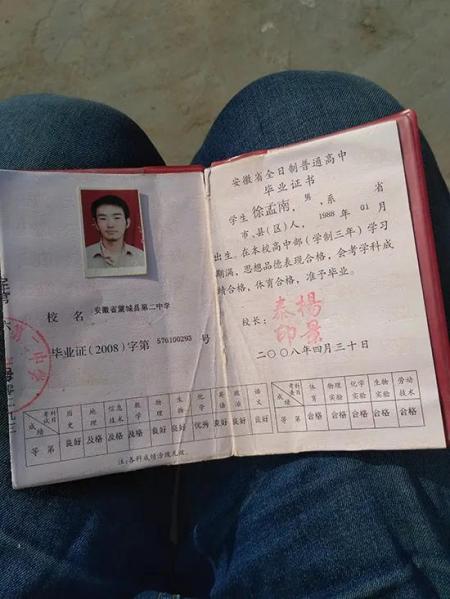 校 名 安徽省蒙城县第二中学
毕业证（2008）字第 576100293 号
考试科目 历史 地理 信息技术 数学 物理 生物 化学 英语 政治 语文
成绩
等 第 良好 及格 良好 及格 良好 良好 优秀 良好 良好 良好
注:各科成绩涂改无效。
安徽省全日制普通高中
毕业证书
学生 徐孟南，男，系 省
市、县(区)人，1988 年 01 月
出生。在本校高中部(学制三年)学习
期满，思想品德表现合格，会考学科成
绩合格，体育合格，准予毕业。
校长：
泰楊
印景
二〇〇八年四月三十日
考查科目 体育 物理实验 化学实验 生物实验 劳动技术
成绩
等 第 合格 合格 合格 合格 合格